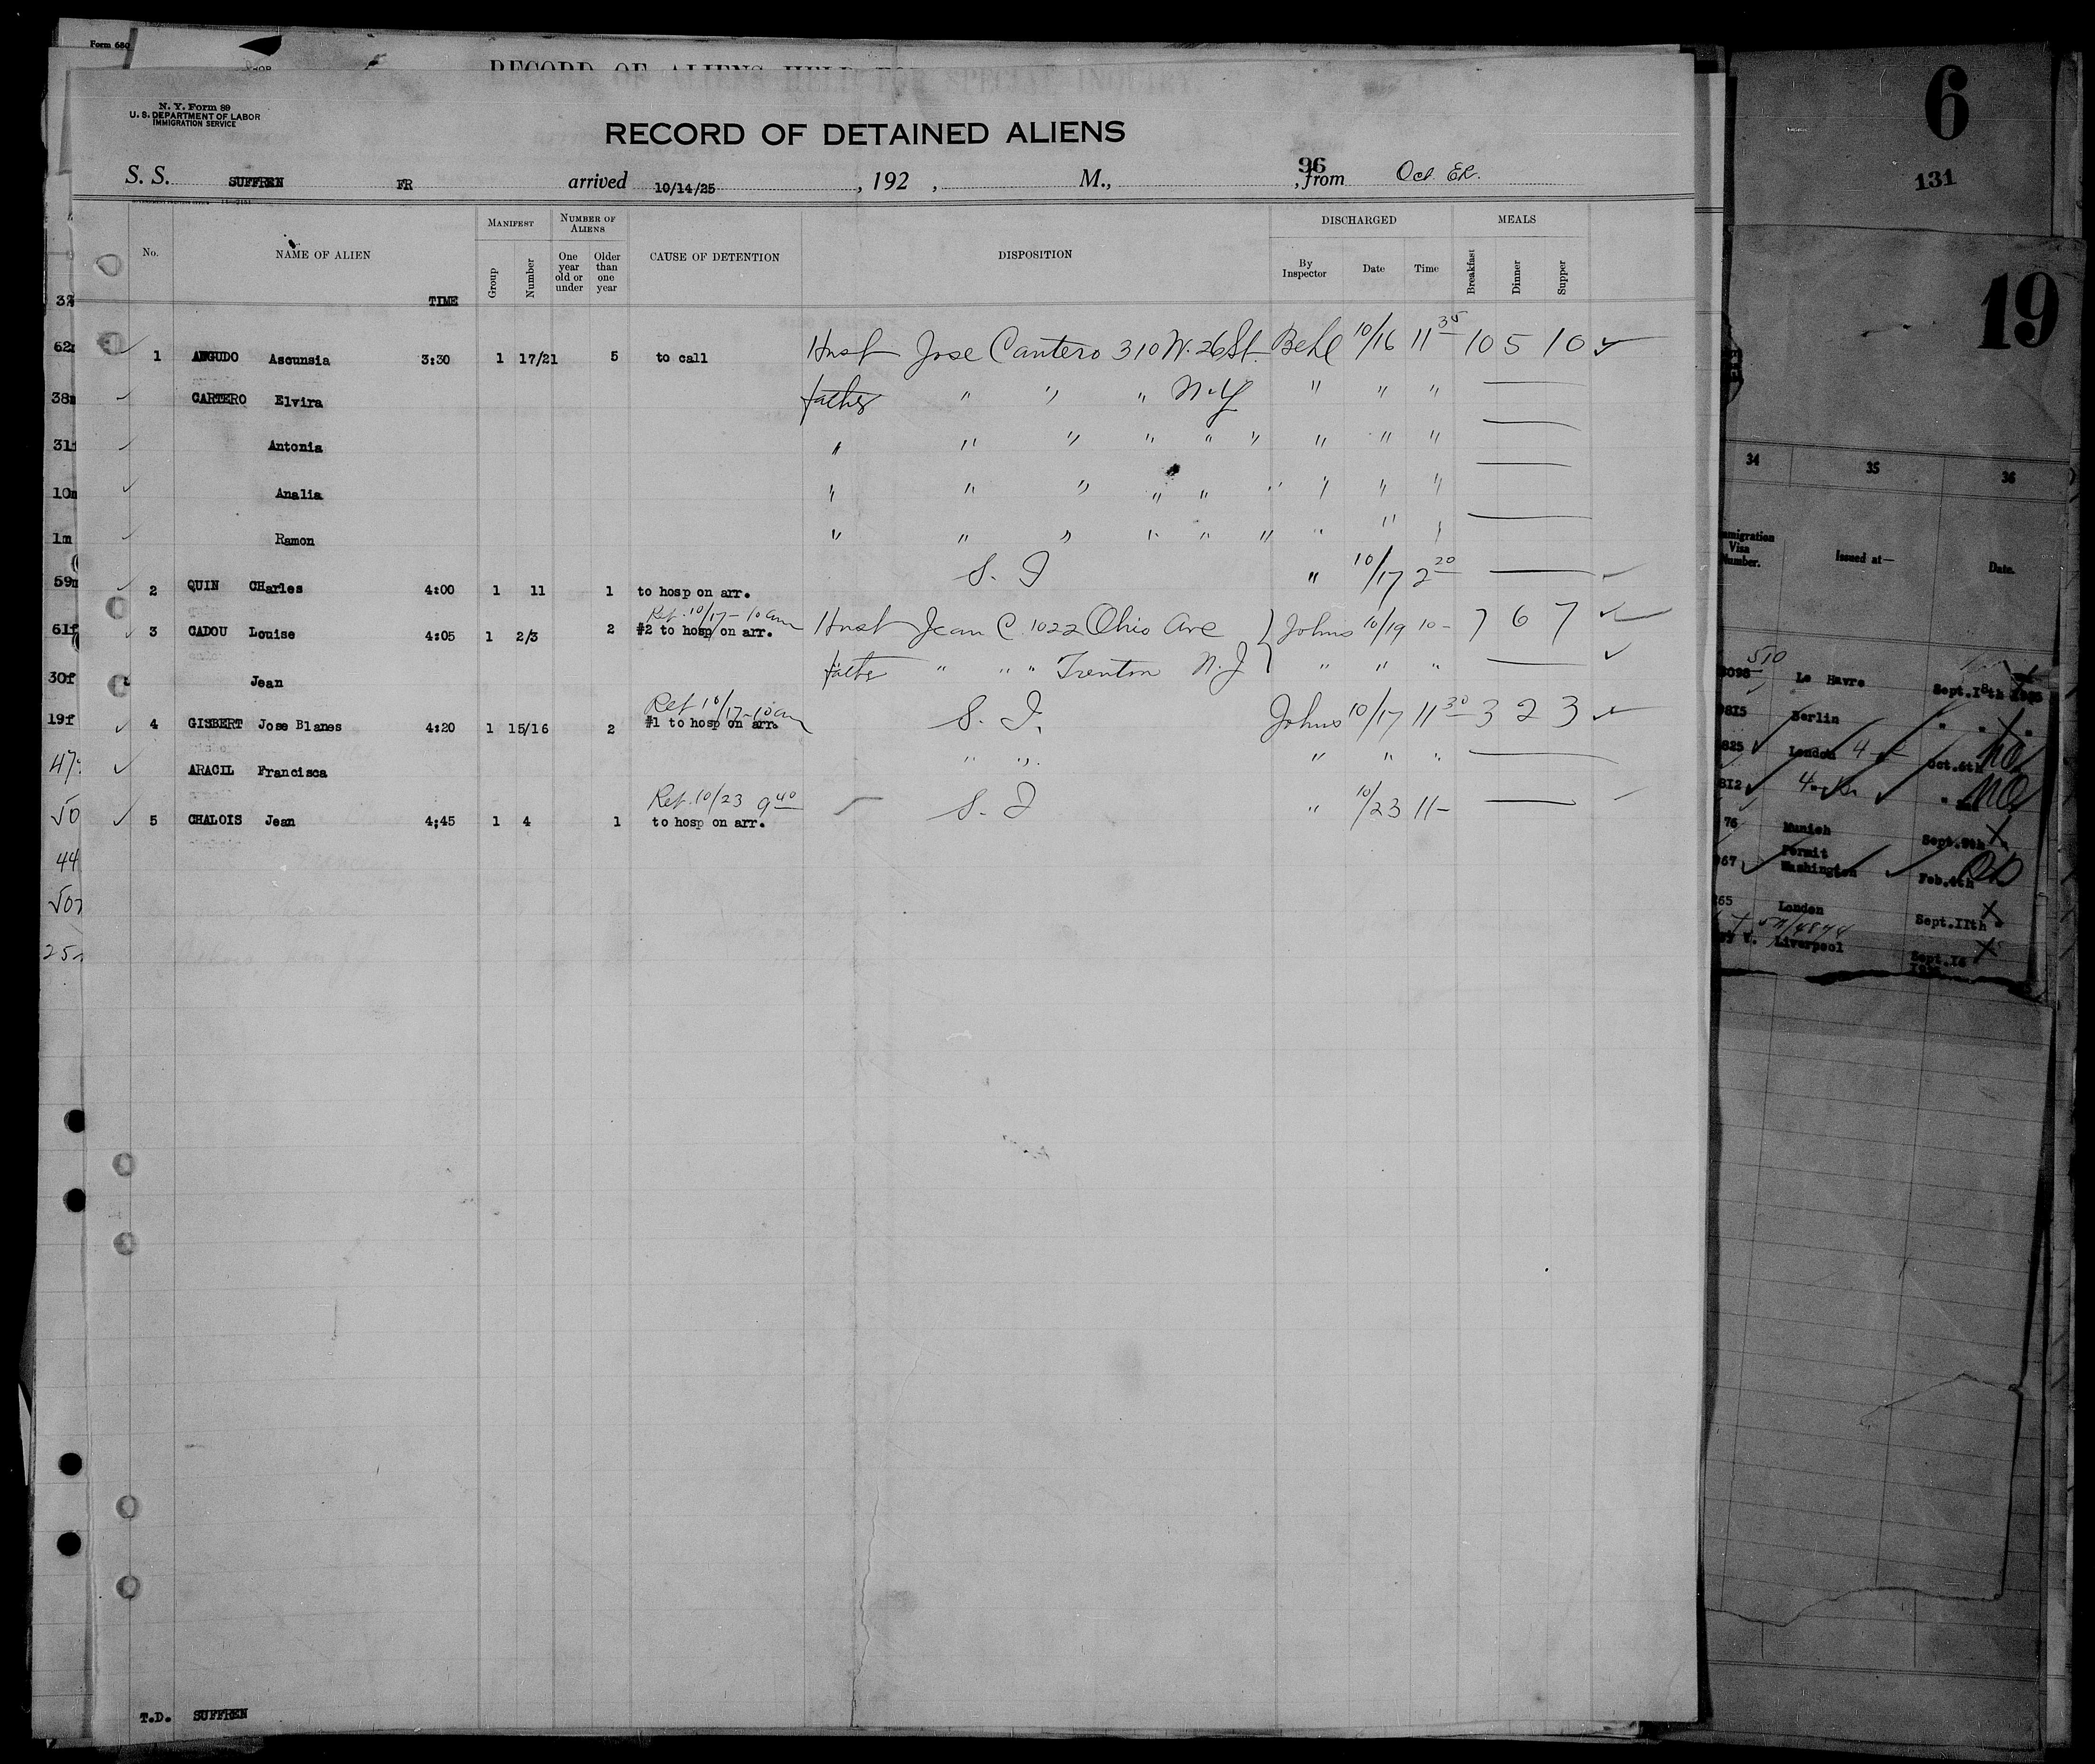 Form 680
RECORD OF ALIENS HELD FOR SPECIAL INQUIRY
N. Y. Form 89
U. S. DEPARTMENT OF LABOR
IMMIGRATION SERVICE
RECORD OF DETAINED ALIENS
S. S. SUFFREN FR arrived 10/14/25, 192 , M., 96 , from Oct. ER.
No. NAME OF ALIEN TIME MANIFEST Group Number NUMBER OF ALIENS One year old or under Older than one year CAUSE OF DETENTION DISPOSITION DISCHARGED By Inspector Date Time MEALS Breakfast Dinner Supper
1 ANGUDO Ascunsia 3:30 1 17/21 5 to call Husb Jose Cantero 310 W. 26 St. Behl 10/16 11 35 10 5 10
CARTERO Elvira father " " " N.Y " " "
Antonia " " " " " " " " "
Analia " " " " " " " " "
Ramon " " " " " " " " "
2 QUIN CHarles 4:00 1 11 1 to hosp on arr. S. I " 10/17 2 20
Ret. 10/17 - 10 am
3 CADOU Louise 4:05 1 2/3 2 #2 to hosp on arr. Husb Jean C. 1022 Ohio Ave Johns 10/19 10 - 7 6 7
Jean father " " " Trenton N.J " " "
Ret 10/17 - 10 am
4 GISBERT Jose Blanes 4:20 1 15/16 2 #1 to hosp on arr. S. I. Johns 10/17 11 30 3 2 3
ARACIL Francisca " " " " "
Ret. 10/23 9 40
5 CHALOIS Jean 4;45 1 4 1 to hosp on arr. S. I " 10/23 11 -
T.D. SUFFREN
62
38m
31f
10m
1m
59m
61f
30f
19f
47
50
44
50
25
6
131
19
34 35 36
Immigration Visa Number. Issued at— Date.
510
Le Havre Sept.18th
Berlin " "
825 London Oct.6th no
812 no
76 Munich Sept.9th
Permit
Washington Feb.4th
265 London Sept.11th
Liverpool Sept.16